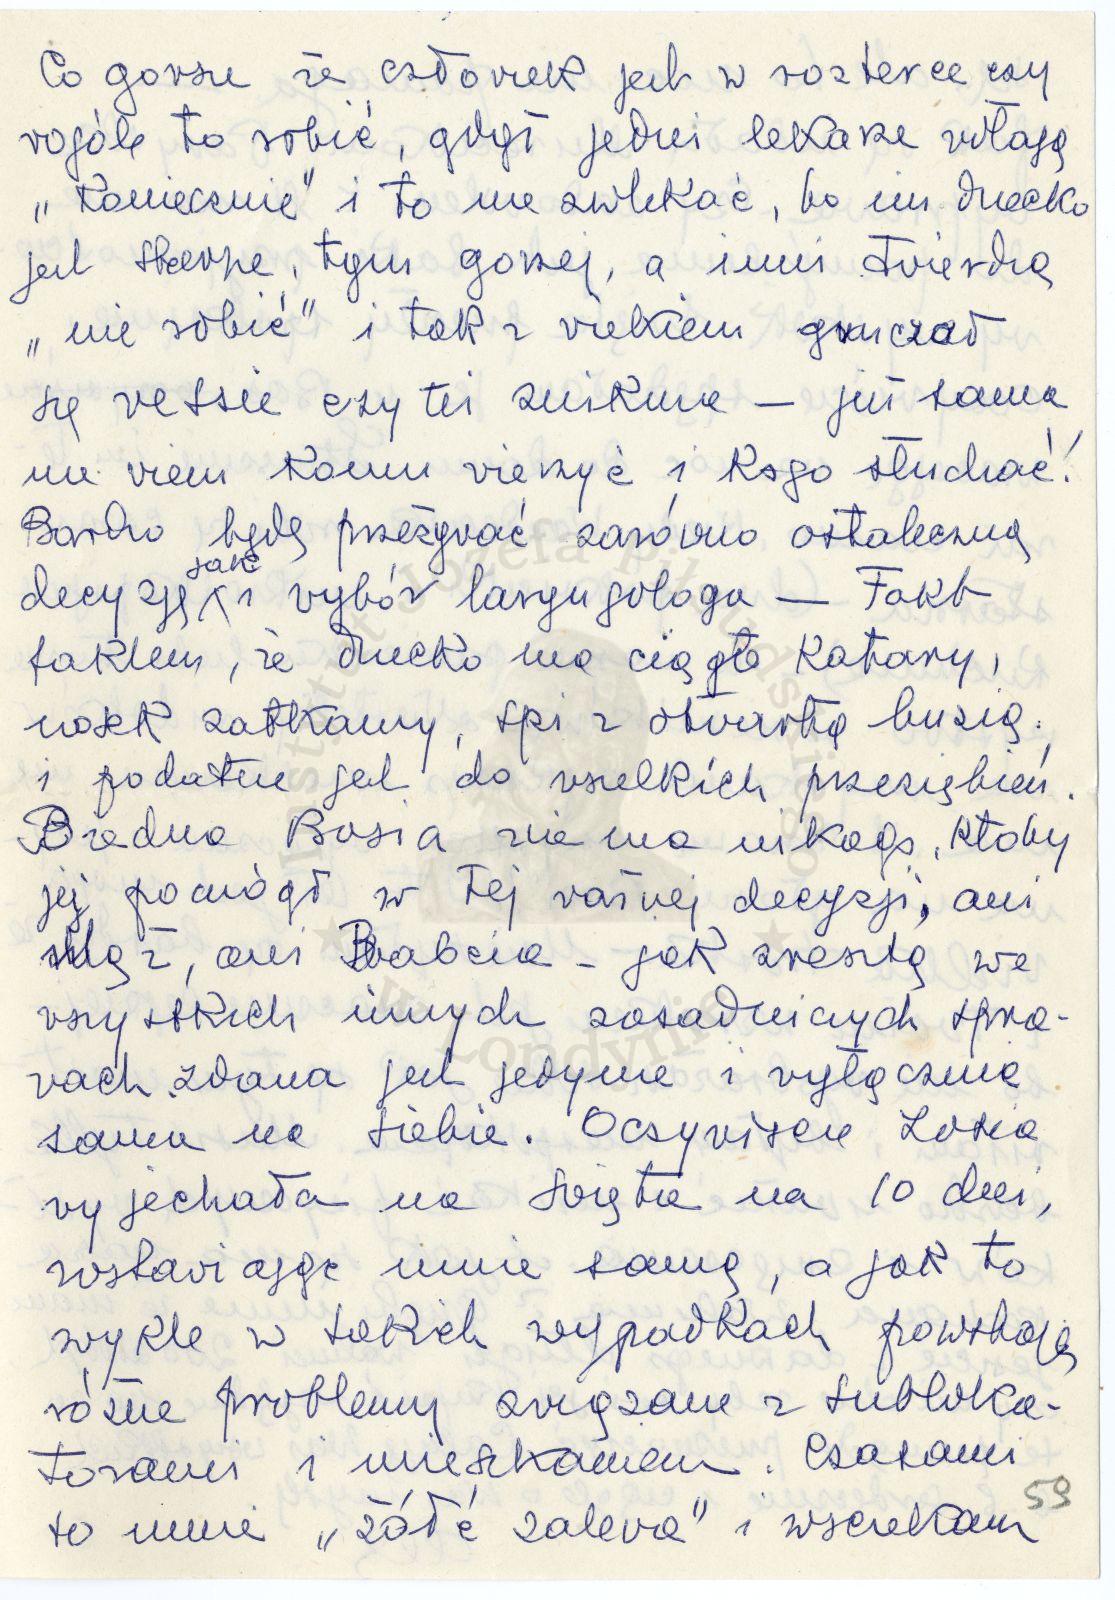 Co gorsze że człowiek jest w rozterce czy
wogóle to robić, gdyż jedni lekarze wołają
„koniecznie" i to nie zwlekać, bo im dziecko
jest starsze, tym gorzej, a inni twierdzą
„nie robić" i tak z wiekiem gruczoł
się zetsie czy też znikma — już sama
nie wiem komu wierzyć i kogo słuchać!
Bardzo będę przeżywać zarówno ostateczną
decyzję jak i wybór laryngologa — Fakt
faktem, że dziecko ma ciągłe katary,
nosek zatkany, śpi z otwartą buzią,
i podatne jest do wszelkich przeziębień.
Biedna Busia nie ma nikogo, ktoby
jej pomógł w tej ważnej decyzji, ani
Mąż, ani Babcia – jak zresztą we
wszystkich innych zasadniczych spra-
wach zdana jest jedynie i wyłącznie
sama na siebie. Oczywiście Zosia
wyjechała na święta na 10 dni,
zostawiając mnie samą, a jak to
zwykle w takich wypadkach powstają
różne problemy związane z subloka-
torami i mieszkaniem. Czasami
to mnie „żółć zalewa" i wściekam
59
Instytut Józefa Piłsudskiego
w Londynie